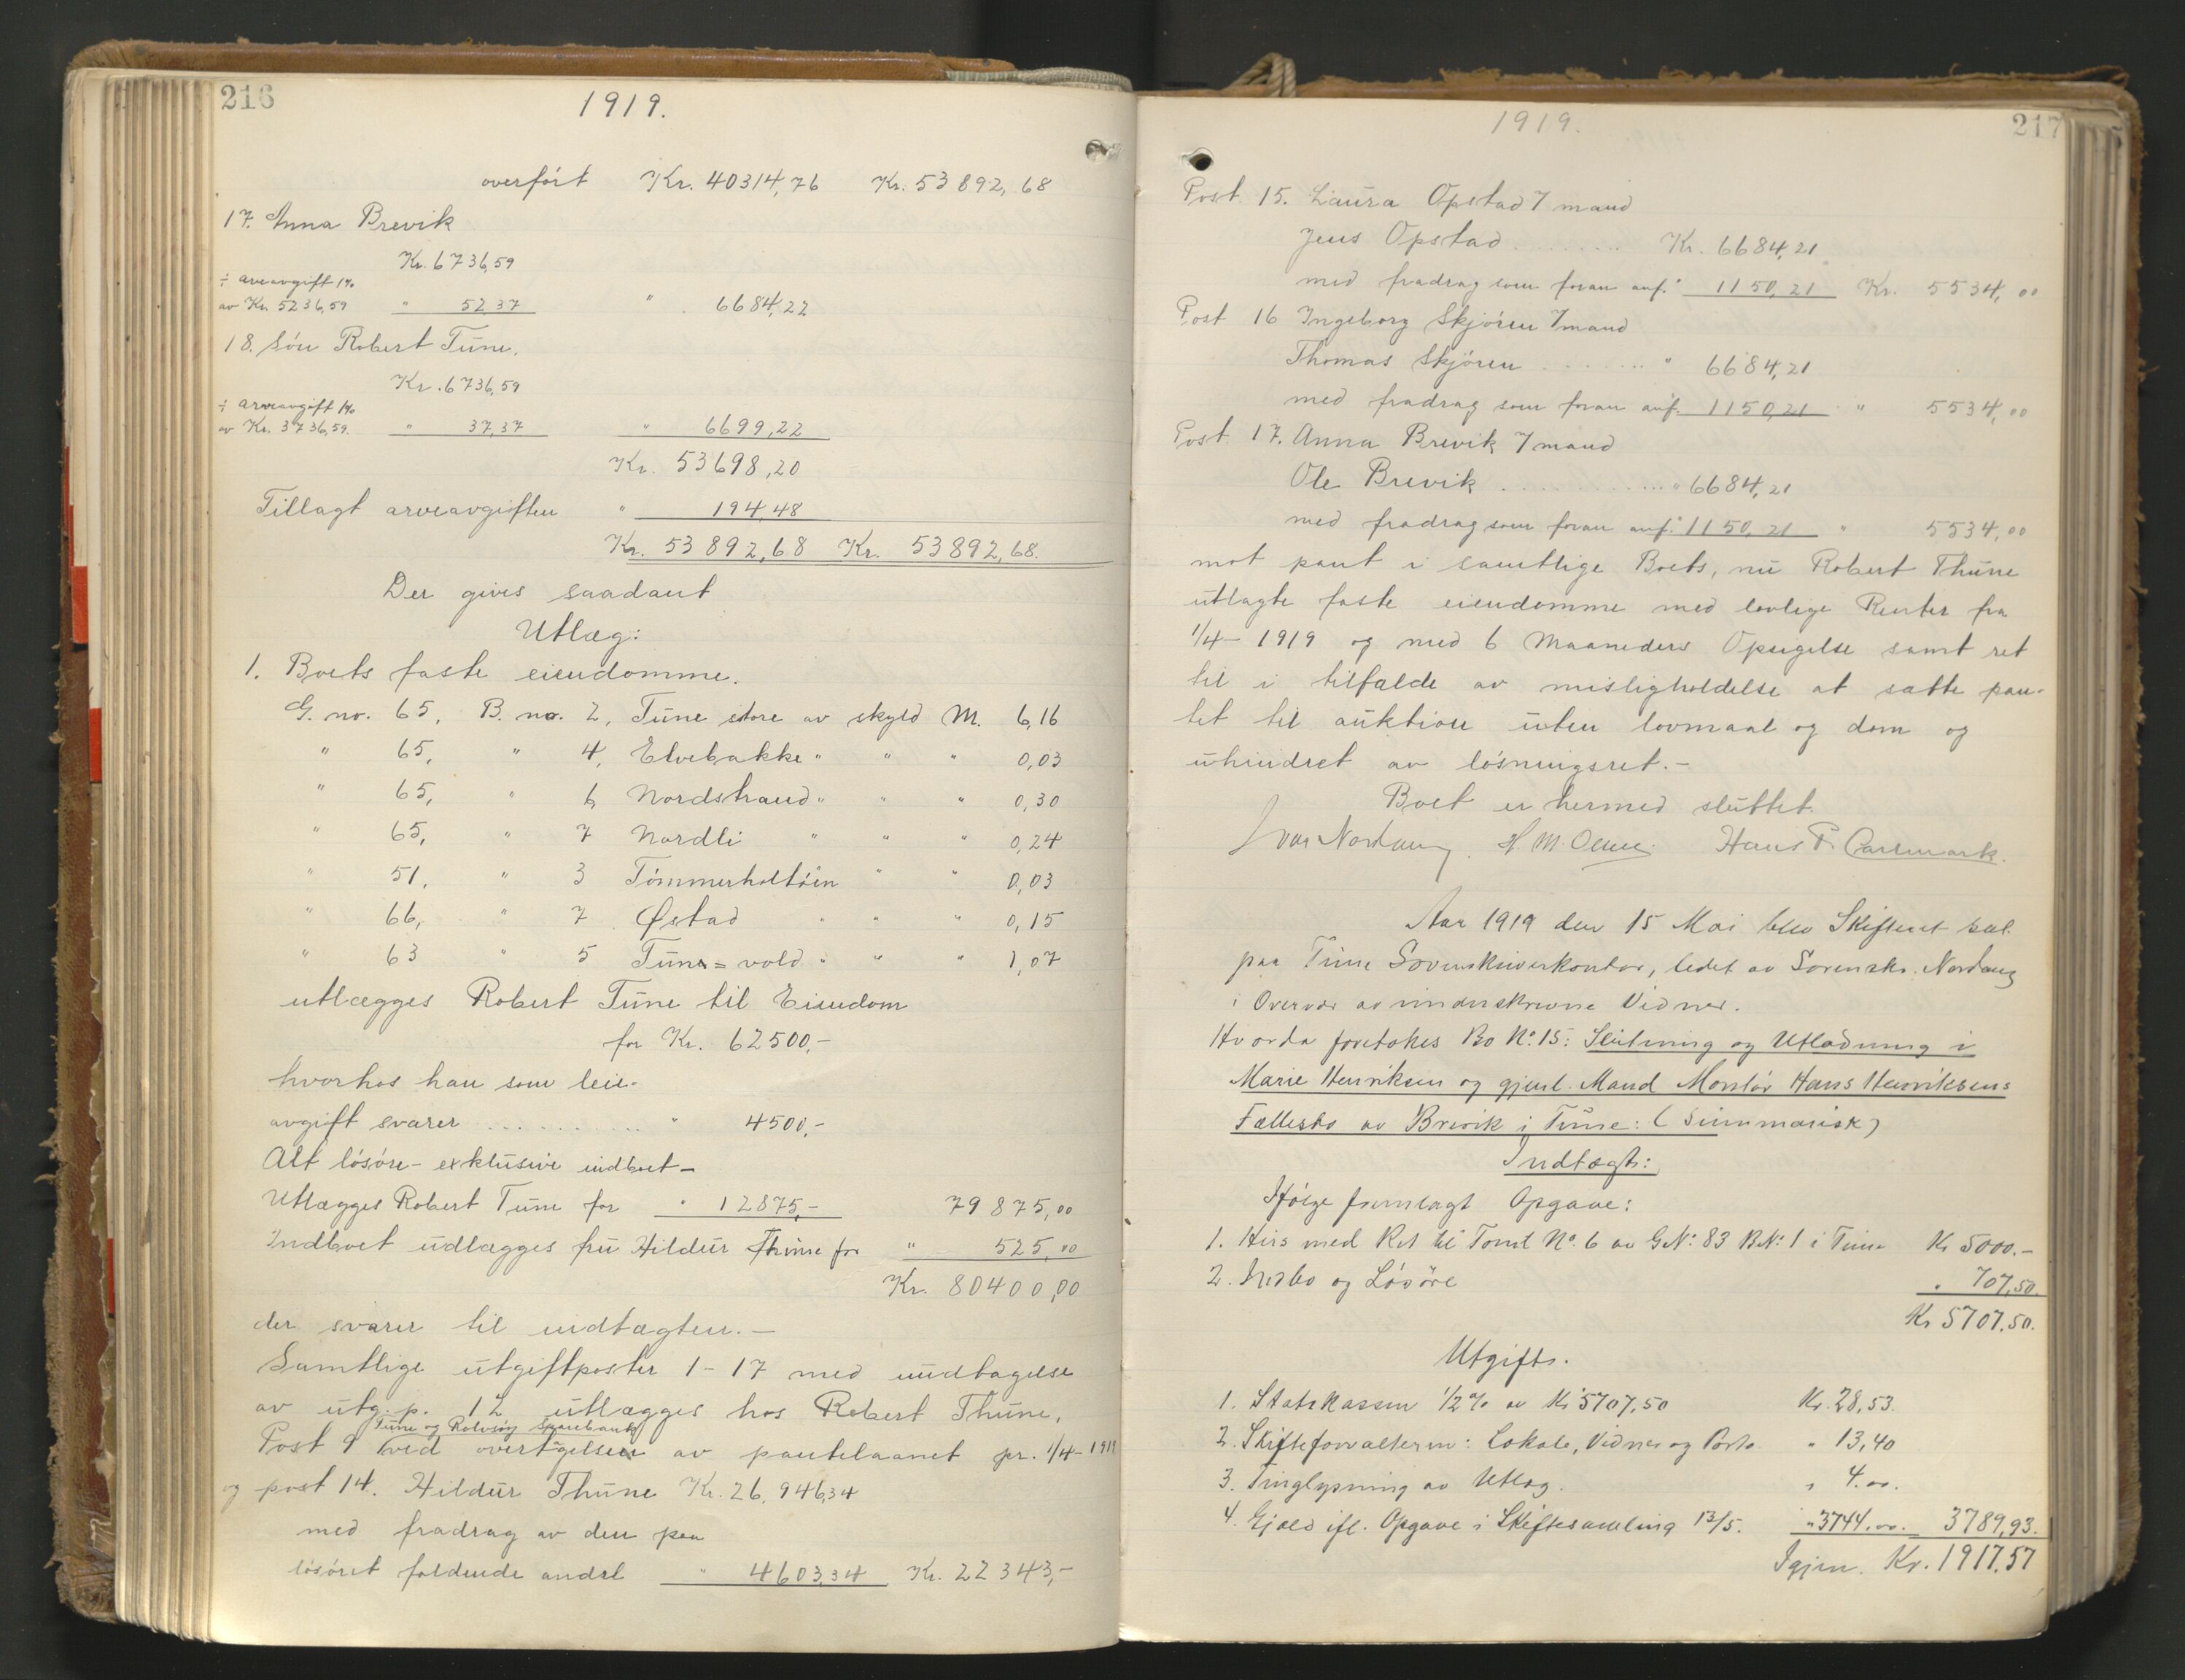 216
1919.
overført Kr. 40314,76 Kr. 53892,68
17. Anna Brevik
Kr. 6736,59
÷ arveavgift 1%
av Kr. 5236,59 " 52 37 " 6684,22
18. Søn Robert Tune.
Kr. 6736,59
÷ arveavgift 1%
av Kr. 3736,59. " 37,37 " 6699,22
Kr. 53698,20
Tillagt arveavgiften " 194,48
Kr. 53892,68 Kr. 53892,68.
Der gives saadant
Utlæg:
1. Boets faste eiendomme.
G. no. 65, B. no. 2, Tune store av skyld M. 6,16
" 65, " 4, Elvebakke " " " 0,03
" 65, " 6 Nordstrand " " " 0,30
" 65, " 7 Nordli " " " 0,24
" 51, " 3 Tømmerholtøen " " 0,03
" 66, " 7 Østad " " " 0,15
" 63 " 5 Tune=vold " " " 1,07
utlægges Robert Tune til Eiendom
for Kr. 62500,-
hvorhos han som leie-
avgift svarer .......... " 4500,-
Alt løsøre - exklusive indboet -
Utlægges Robert Tune for " 12875,- 79875,00
Indboet udlægges fru Hildur Thune for " 525,00
Kr. 80400,00
der svarer til indtægten. —
Samtlige utgiftposter 1-17 med undtagelse
av utg. p. 12 utlægges hos Robert Thune,
Tune og Rolvsøy Sparebank
Post 9 ved overtagelsen av pantelaanet pr. 1/4-1919
og post 14. Hildur Thune Kr. 26,946,34
med fradrag av den paa
løsøret faldende andel " 4603,34 Kr. 22343,-
217
1919.
Post 15. Laura Opstad 7 mand
Jens Opstad ....... Kr. 6684,21
med fradrag som foran anf. " 1150,21 Kr. 5534,00
Post 16 Ingeborg Skjøren 7 mand
Thomas Skjøren ....... " 6684,21
med fradrag som foran anf. 1150,21 " 5534,00
Post 17. Anna Brevik 7 mand
Ole Brevik .......... " 6684,21
med fradrag som foran anf. " 1150,21 " 5534,00
mot pant i samtlige Boets, nu Robert Thune
utlagte faste eiendomme med lovlige Renter fra
1/4-1919 og med 6 Maaneders Opsigelse samt ret
til i tilfælde av misligholdelse at sætte pan-
tet til auktion uten lovmaal og dom og
uhindret av løsningsret.-
Boet er hermed sluttet.
Ivar Nordang. H. M. Olsen. Hans P. Carlmark.
Aar 1919 den 15 Mai blev Skifteret sat
paa Tune Sorenskriverkontor, ledet av Sorenskr. Nordang
i Overvær av underskrevne Vidner.
Hvorda foretokes Bo No 15: Slutning og Utlodning i
Marie Henriksen og gjenl. Mand Montør Hans Henriksens
Fællesbo av Brevik i Tune: (Summarisk)
Indtægt:
Ifølge fremlagt Opgave:
1. Hus med Ret til Tomt No. 6 av G.No: 83 B.No: 1 i Tune Kr 5000.-
2. Indbo og Løsøre " 707,50.
Kr 5707.50.
Utgift.
1. Statskassen 1/2% av Kr 5707,50 Kr. 28,53.
2. Skifteforvalteren: Lokale, Vidner og Porto. " 13,40
3. Tinglysning av Utlæg. " 4.00.
4. Gjæld ifl. Opgave i Skiftesamling 13/5. " 3744.00. 3789,93.
Igjen. Kr. 1917.57